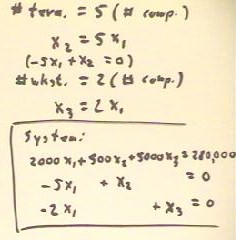 # term. = 5 (# comp.)
x₂ = 5 x₁
(-5x₁ + x₂ = 0)
# wkst. = 2 (# comp.)
x₃ = 2 x₁
System:
2000 x₁ + 500 x₂ + 5000 x₃ = 280,000
-5x₁ + x₂ = 0
-2 x₁ + x₃ = 0